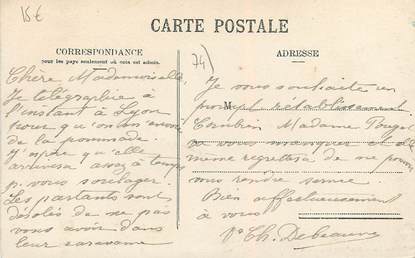 15€
74)
CARTE POSTALE
CORRESPONDANCE
pour les pays seulement où cela est admis.
ADRESSE
M
Chère Mademoiselle
Je télégraphie à
l'instant à Lyon
pour qu'on
de la
J'espère qu'elle
arrivera assez à temps
p. vous soulager.
Les partants sont
désolés de ne pas
vous avoir dans
leur caravane
Je vous souhaite un
prompt rétablissement.
Combien Madame
va vous manquer et
même regrettera de ne pouvoir
vous rendre service
Bien affectueusement
à vous
Th.